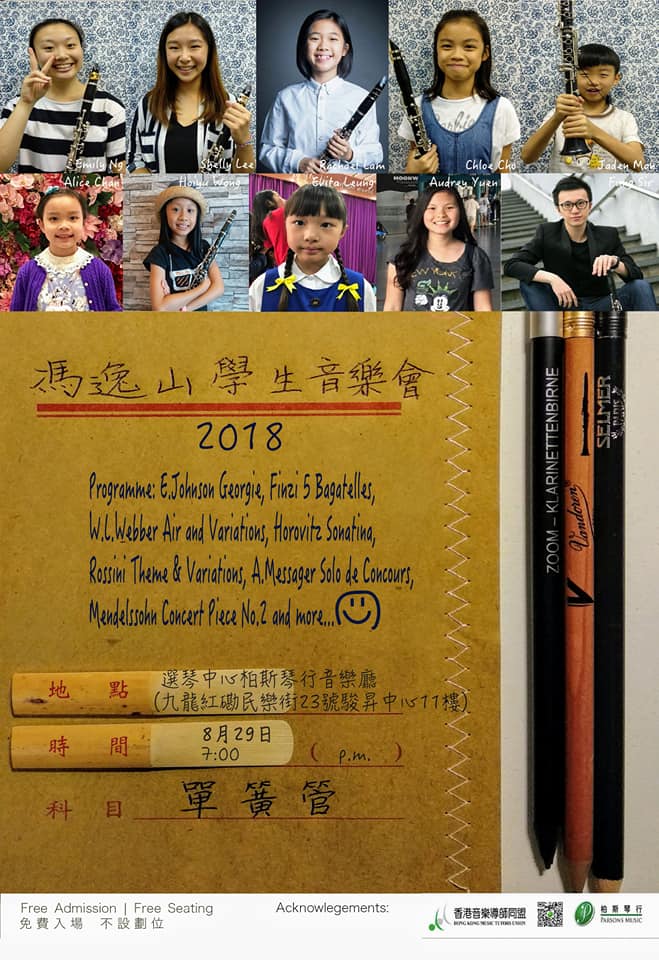 Emily Ng
Shelly Lee
Rachael Lam
Chloe Cho
Jaden Mok
Alice Chan
Hoiyu Wong
Evita Leung
Audrey Yuen
Fung Sir
馮逸山學生音樂會
2018
Programme: E.Johnson Georgie, Finzi 5 Bagatelles,
W.L.Webber Air and Variations, Horovitz Sonatina,
Rossini Theme & Variations, A.Messager Solo de Concours,
Mendelssohn Concert Piece No.2 and more...
地點 選琴中心柏斯琴行音樂廳
(九龍紅磡民樂街23號駿昇中心11樓)
時間 8月29日
7:00 ( p.m. )
科目 單簧管
ZOOM – KLARINETTENBIRNE
Vandoren
SELMER
PARIS
Free Admission | Free Seating
免費入場 不設劃位
Acknowlegements:
香港音樂導師同盟
HONG KONG MUSIC TUTORS UNION
柏斯琴行
PARSONS MUSIC